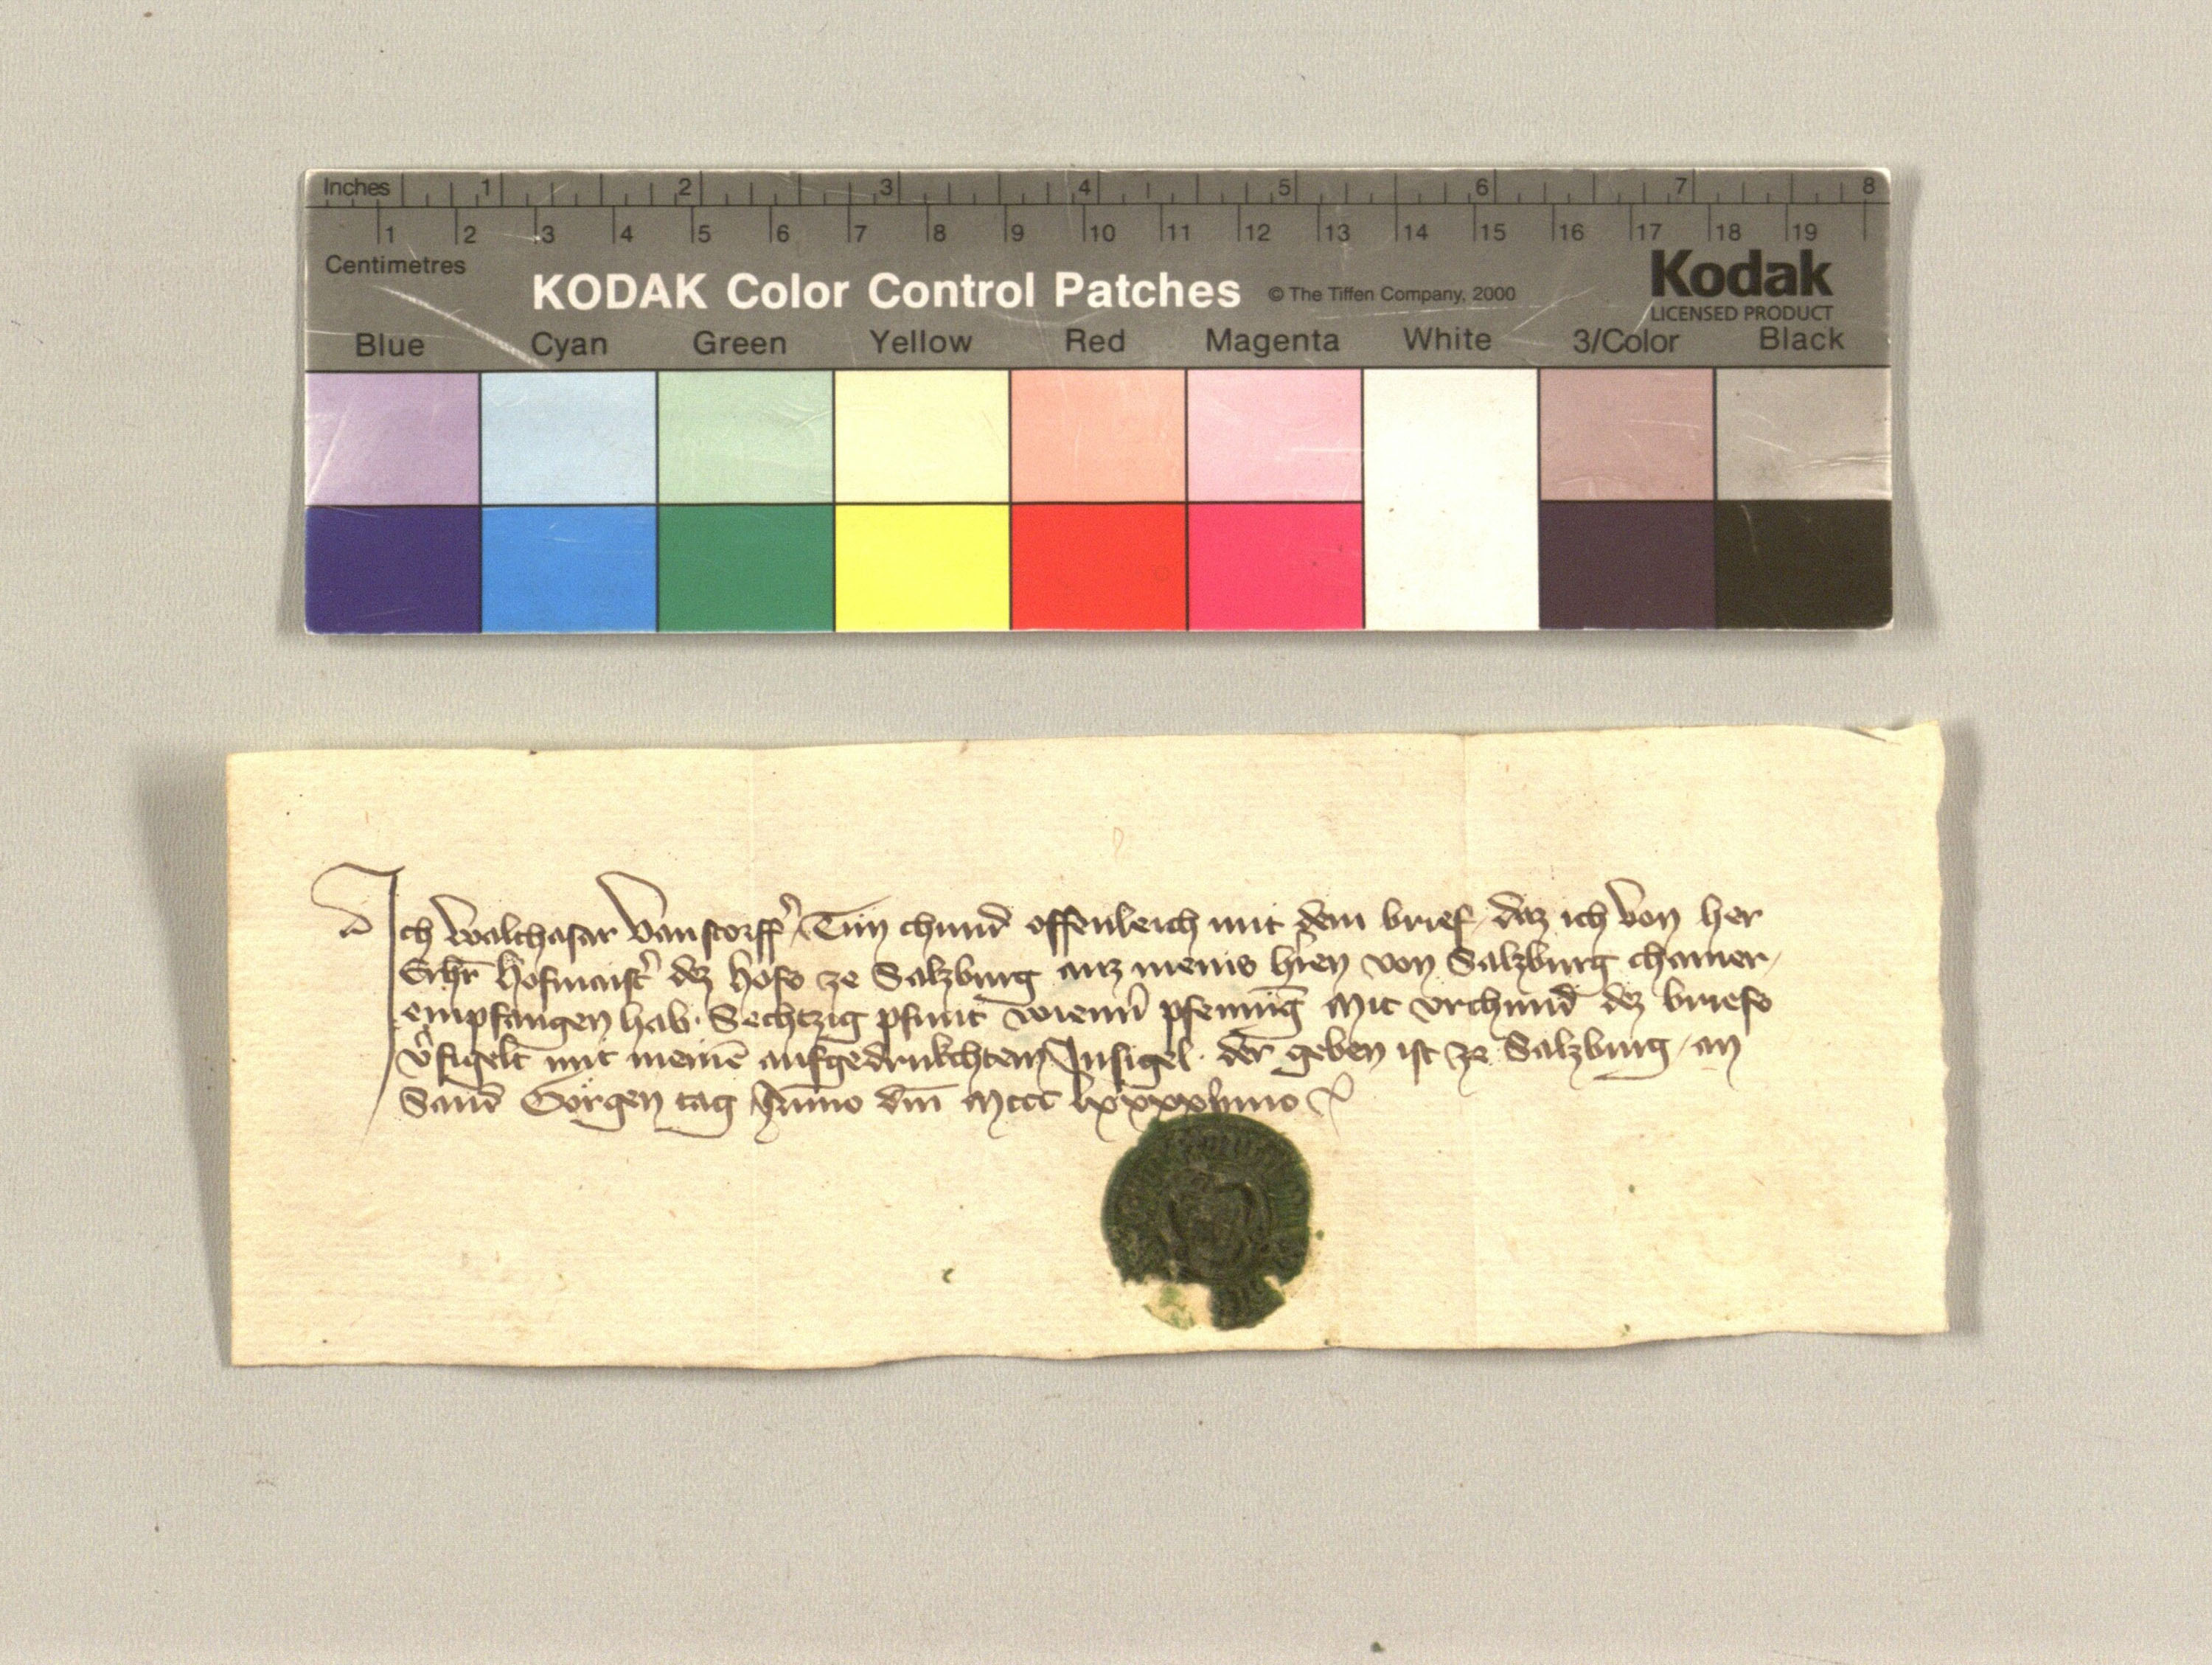 Inches 1 2 3 4 5 6 7 8
1 2 3 4 5 6 7 8 9 10 11 12 13 14 15 16 17 18 19
Centimetres
KODAK Color Control Patches © The Tiffen Company, 2000 Kodak
LICENSED PRODUCT
Blue Cyan Green Yellow Red Magenta White 3/Color Black
Ich walthasar vanstorff̉ Tun chund offenleich mit dem brief daz ich von her
Hofmaist̉ dez hofs ze Salzburg auz meins hr̄en von Salzburg chamer
empfangen hab Sechtzig pfunt wienn̉ pfenning Mit vrchund dez briefs
v̉sigelt mit meinē aufgedrukchtem Insigel der geben ist ze Salzburg an
Sand Görgen tag Anno dm̄ Mccc